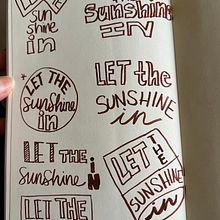 LET THE
SUN
shine
in
THE
Sunshine
IN
LET THE
Sunshine
in
LET the
SUNSHINE
in
LET THE
Sunshine
iN
LET
THE
SUNSHINE
in
LET THE